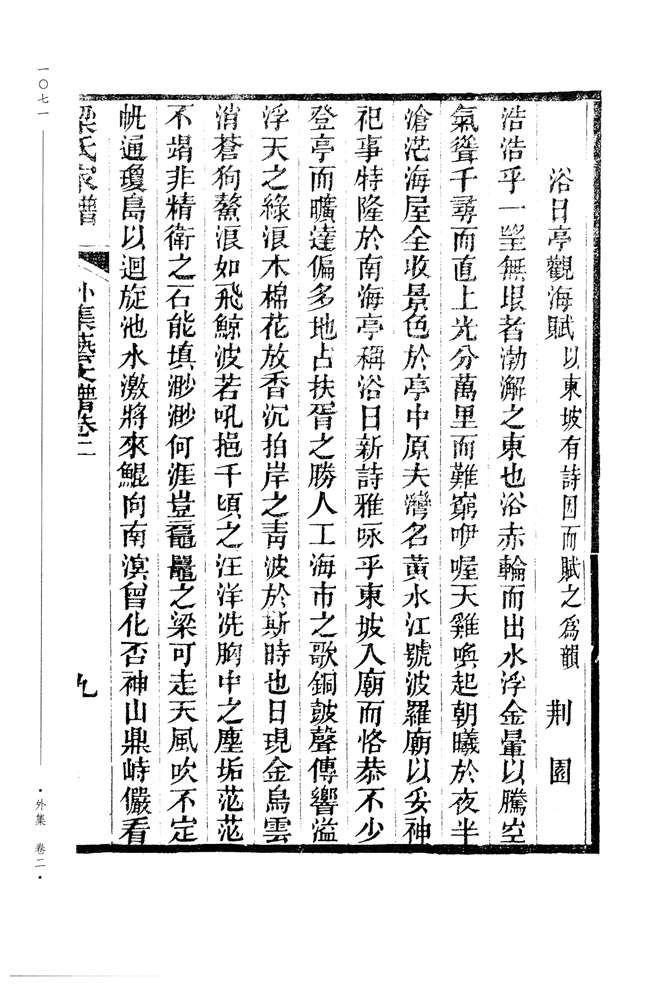 浴日亭觀海賦 以東坡有詩因而賦之爲韻 荆園
浩浩乎一望無垠者渤澥之東也浴赤輪而出水浮金暈以騰空
氣聳千尋而直上光分萬里而難窮咿喔天雞喚起朝曦於夜半
滄茫海屋全收景色於亭中原夫灣名黃水江號波羅廟以妥神
祀事特隆於南海亭稱浴日新詩雅咏乎東坡入廟而恪恭不少
登亭而曠達偏多地占扶胥之勝人工海市之歌銅皷聲傳響溢
浮天之綠浪木棉花放香沉拍岸之靑波於斯時也日現金烏雲
消蒼狗鰲浪如飛鯨波若吼挹千頃之汪洋洗胸中之塵垢茫茫
不竭非精衛之石能填渺渺何涯豈黿鼉之梁可走天風吹不定
帆通瓊島以迴旋池水激將來鯤向南溟曾化否神山鼎峙儼看
梁氏家譜 外集藝文譜卷二 九
一〇七一 ·外集 卷二·